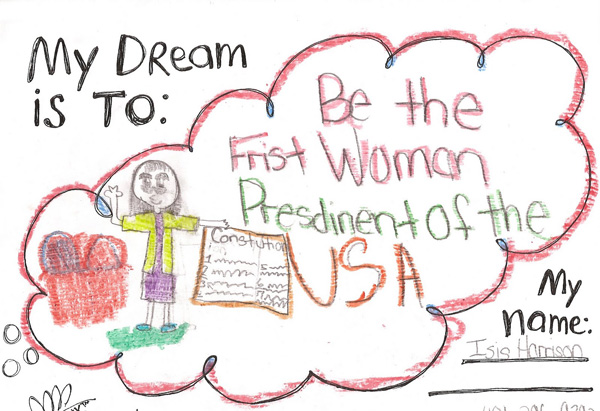 My DReam
is To:
Be the
Frist Woman
Presdinent of the
USA
Constution
1
2
3
5
6
7
My
name:
Isis Harrison